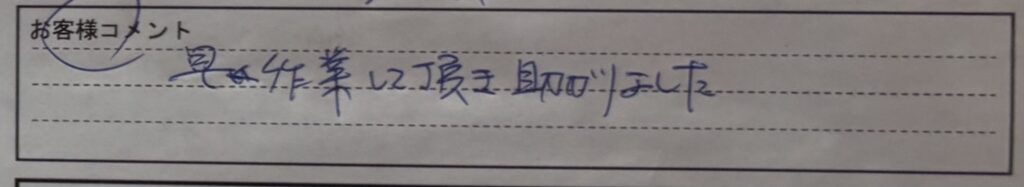 お客様コメント
早く作業して頂き助かりました